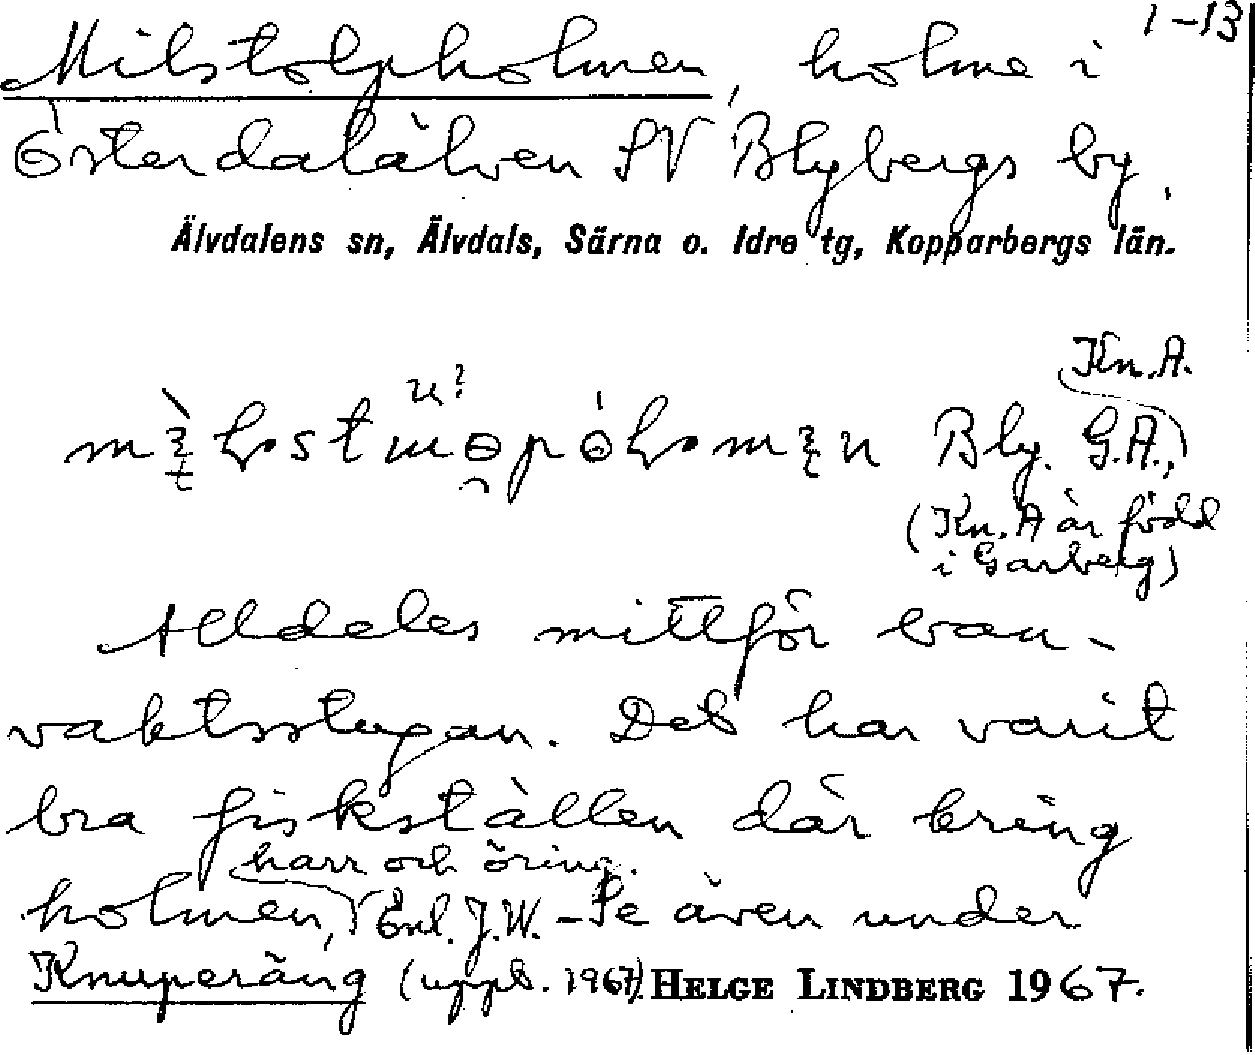 1-13
Milstolpholmen, holme i
Österdalälven SV Blybergs by,
Älvdalens sn, Älvdals, Särna o. Idre tg, Kopparbergs län.
Kn. A.
u?
Bly. G.A.,
(Kn. A är född
i Garberg)
Alldeles mittför ban-
vaktsstugan. Det har varit
bra fiskställen där kring
harr och öring.
holmen, Enl. J.W. - Se även under
Knuperäng (uppt. 1967) HELGE LINDBERG 1967.